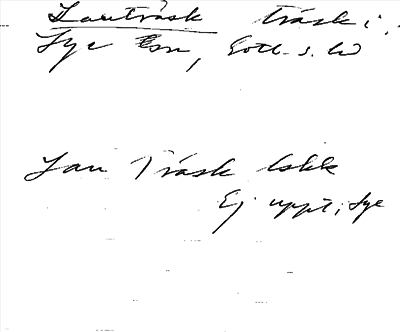 Lauträsk träsk i
Lye sn, Gotl. s. hd
Lau Träsk lskk
Ej uppt. i Lye